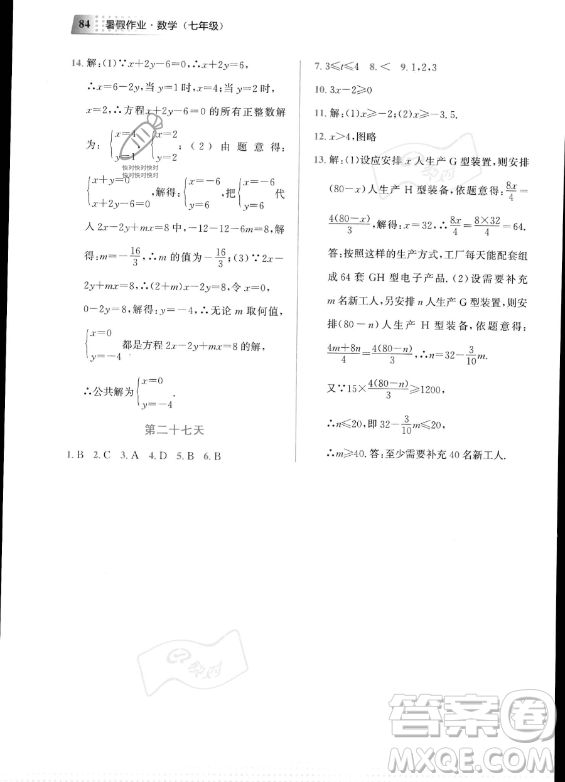 84 暑假作业·数学(七年级)
14. 解:(1)∵x+2y-6=0,∴x+2y=6,
∴x=6-2y,当 y=1时,x=4;当 y=2时,
x=2,∴方程 x+2y-6=0 的所有正整数解
为:{x=4 y=1,{x=2 y=2;(2)由题意得:
快对快对快对
快对快对快对
{x+y=0 x+2y-6=0,解得:{ ,把{ 代
入 x-2y+mx=8 中,-12-12-6m=8,解
得:m=-16/3,∴m 的值为-16/3;(3)∵x-
2y+mx=8,∴(2+m)x-2y=8,令 x=0,
0-2y=8,解得:y=-4,∴无论 m 取何值,
{x=0 y=-4 都是方程 2x-2y+mx=8 的解,
∴公共解为{x=0 y=-4.
第二十七天
1. B 2. C 3. A 4. D 5. B 6. B
7. 3≤t≤4 8. < 9. 1,2,3
10. 3x-2≥0
11. 解:(1)x≥-2;(2)x>-3.5.
12. x>4,图略
13. 解:(1)设应安排 x 人生产 G 型装置,则安排
(80-x)人生产 H 型装备,依题意得:8x/4=
4(80-x)/3,解得:x=32,∴8x/4=8×32/4=64.
答:按照这样的生产方式,工厂每天能配套组
成 64 套 GH 型电子产品.(2)设需要补充
m 名新工人,另安排 n 人生产 G 型装置,则安
排(80-n)人生产 H 型装备,依题意得:
4m+8n/4=4(80-n)/3,∴n=32-3/10 m.
又∵15×4(80-n)/3≥1200,
∴n≤20,即 32-3/10 m≤20.
∴m≥40. 答:至少需要补充 40 名新工人.
快对
答案圈
MXQE.COM